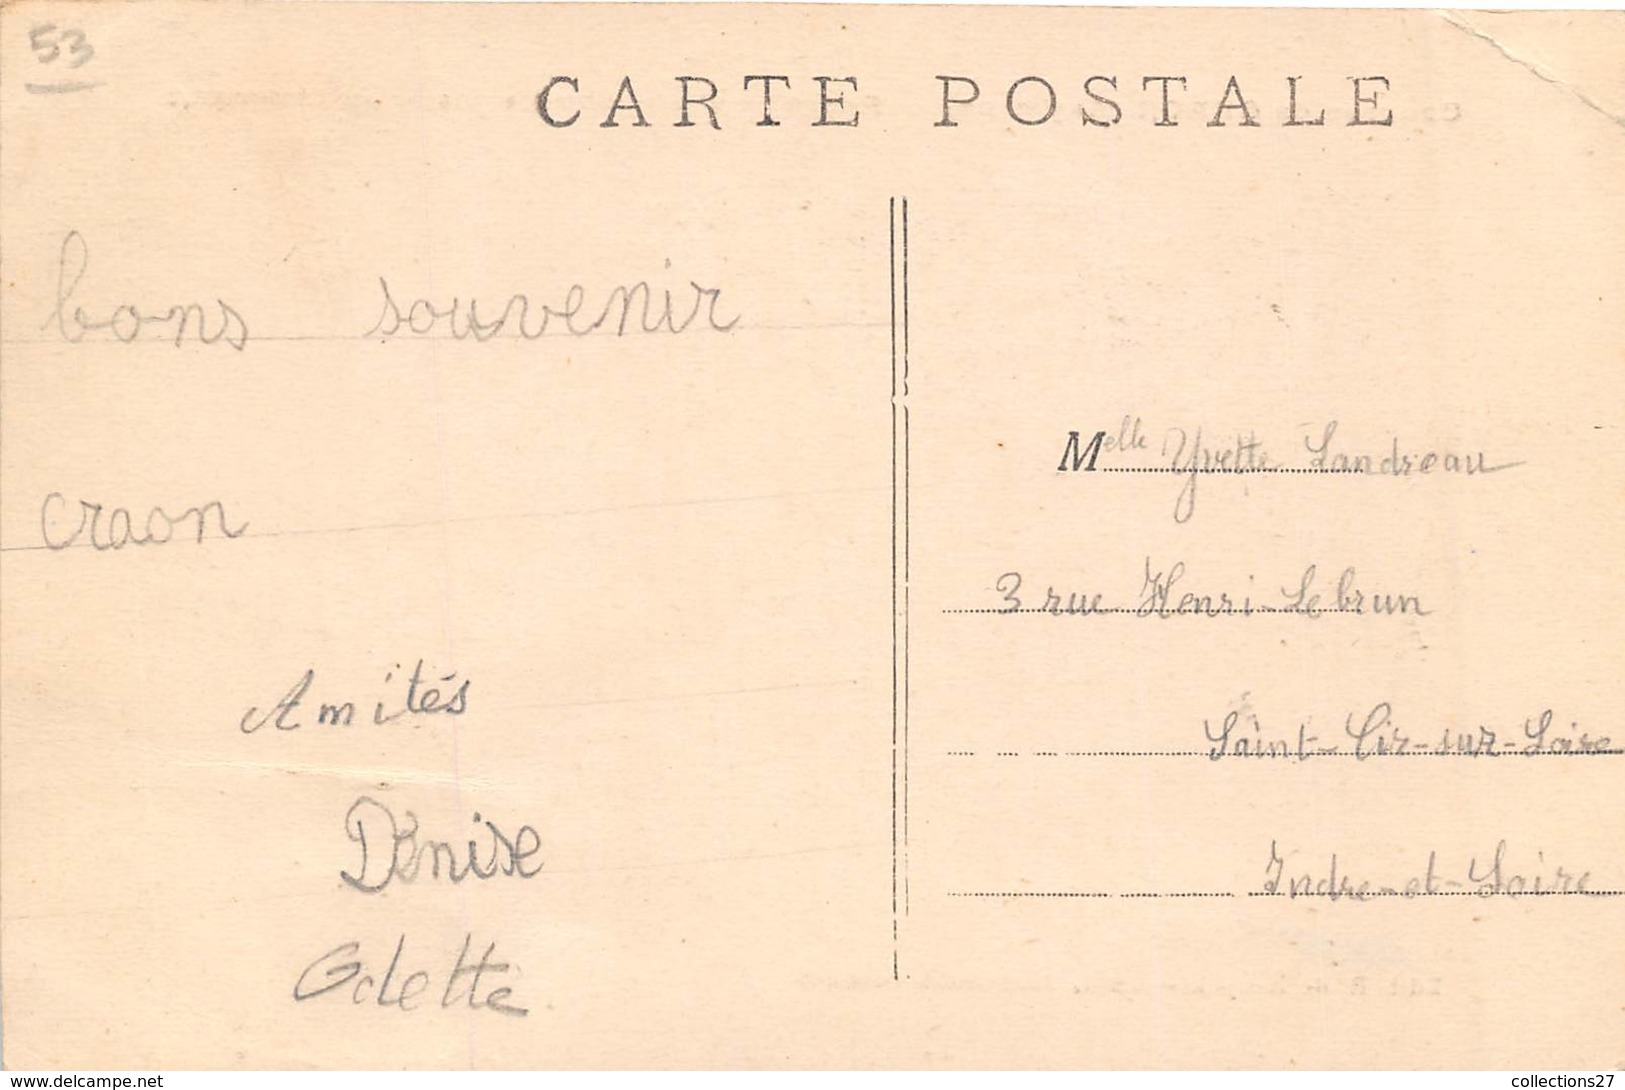 53
CARTE POSTALE
bons souvenir
craon
Amités
Denise
Odette
Melle Yvette Landreau
3 rue Henri-Lebrun
Saint-Cir-sur-Loire
Indre-et-Loire
www.delcampe.net
collections27